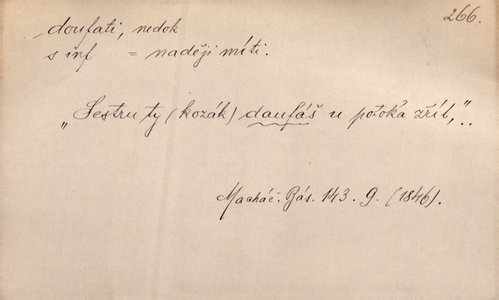 266.
doufati, nedok
s inf = naději míti.
„Sestru ty (kozák) daufáš u potoka zřít,"..
Macháč. Bás. 143. 9. (1846).